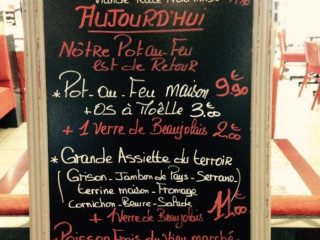 AUJOURD'HUI
Nôtre Pot au Feu
est de Retour
* Pot-au-Feu maison 9€90
+ os à Moëlle 3€00
+ 1 verre de Beaujolais 2€00
* Grande Assiette du terroir
( Grison - Jambon de Pays - Serrano
terrine maison - Fromage
Cornichon - Beurre - Salade ) 11€00
+ 1 Verre de Beaujolais
Poisson Frais du Vieux marché